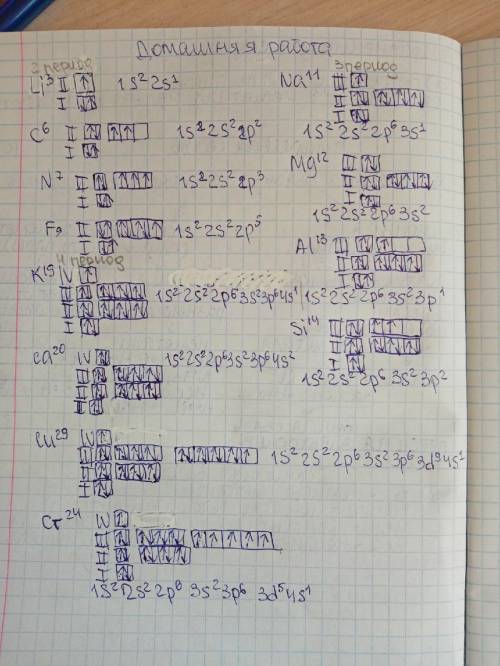 Домашняя работа
2 период
Li³ II 1s²2s¹
I
C⁶ II 1s²2s²2p²
I
N⁷ II 1s²2s²2p³
I
F₉ II 1s²2s²2p⁵
I
4 период
K¹⁹ IV
III 1s²2s²2p⁶3s²3p⁶4s¹
II
I
Ca²⁰ IV 1s²2s²2p⁶3s²3p⁶4s²
III
II
I
Cu²⁹ IV
III 1s²2s²2p⁶3s²3p⁶3d⁹4s²
II
I
Cr²⁴ IV
III
II
I
1s²2s²2p⁶3s²3p⁶3d⁵4s¹
3 период
Na¹¹ III
II
I
1s²2s²2p⁶3s¹
Mg¹² III
II
I
1s²2s²2p⁶3s²
Al¹³ III
II
I
1s²2s²2p⁶3s²3p¹
Si¹⁴ III
II
I
1s²2s²2p⁶3s²3p²